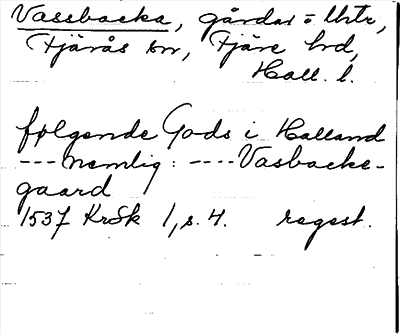 Vassbacka, gårdar = Urtr,
Tjärås sn, Fjäre hrd,
Hall. l.
følgende Gods i Halland
--- nemlig: ---- Vasbacke-
gaard
1537 KrSk 1, s. 4. regest.